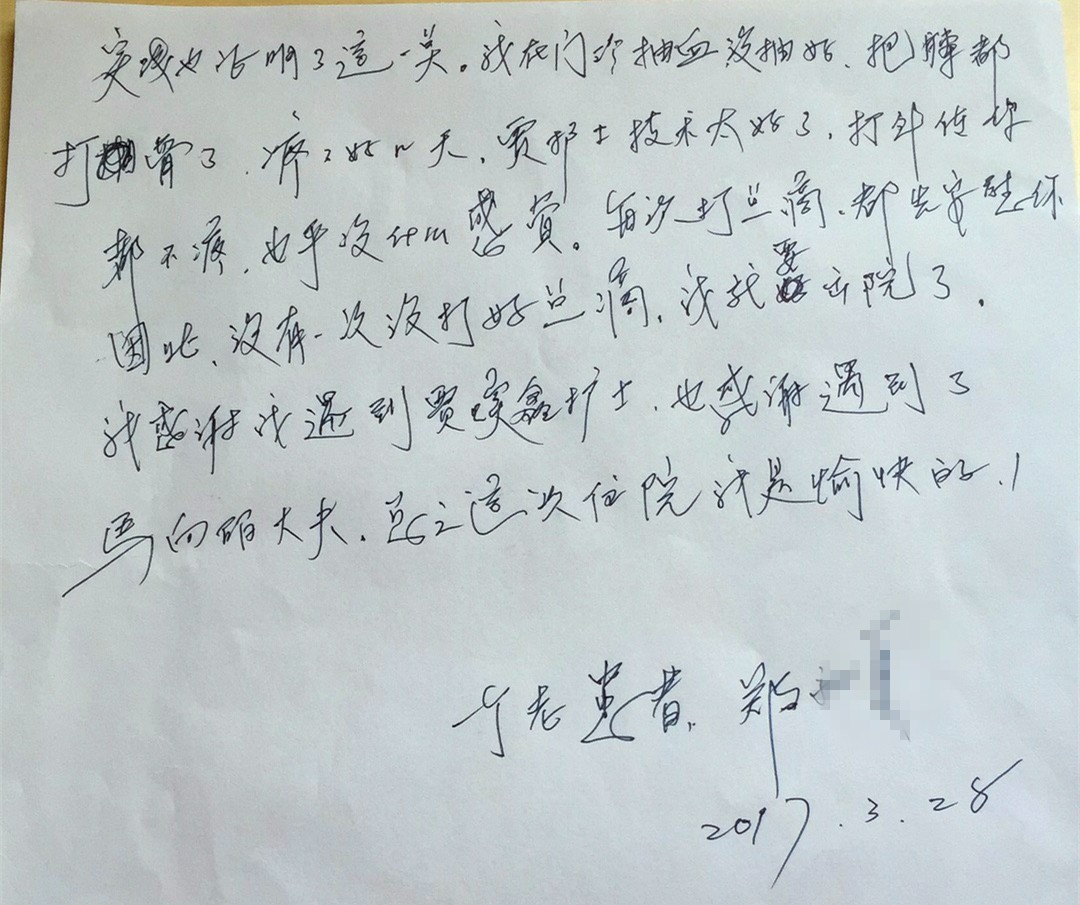 实践也证明了这一点。我在门诊抽血没抽好、把胳都
打青了、疼了好几天、贾护士技术太好了、打针使你
都不疼、也乎没什么感赏。每次打点滴、都先安慰你
因此、没有一次没打好点滴、我就要出院了。
我感谢我遇到贾奕鑫护士、也感谢遇到了
马向明大夫、总之这次住院我是愉快的、!
一个老患者、郑
2017.3.28